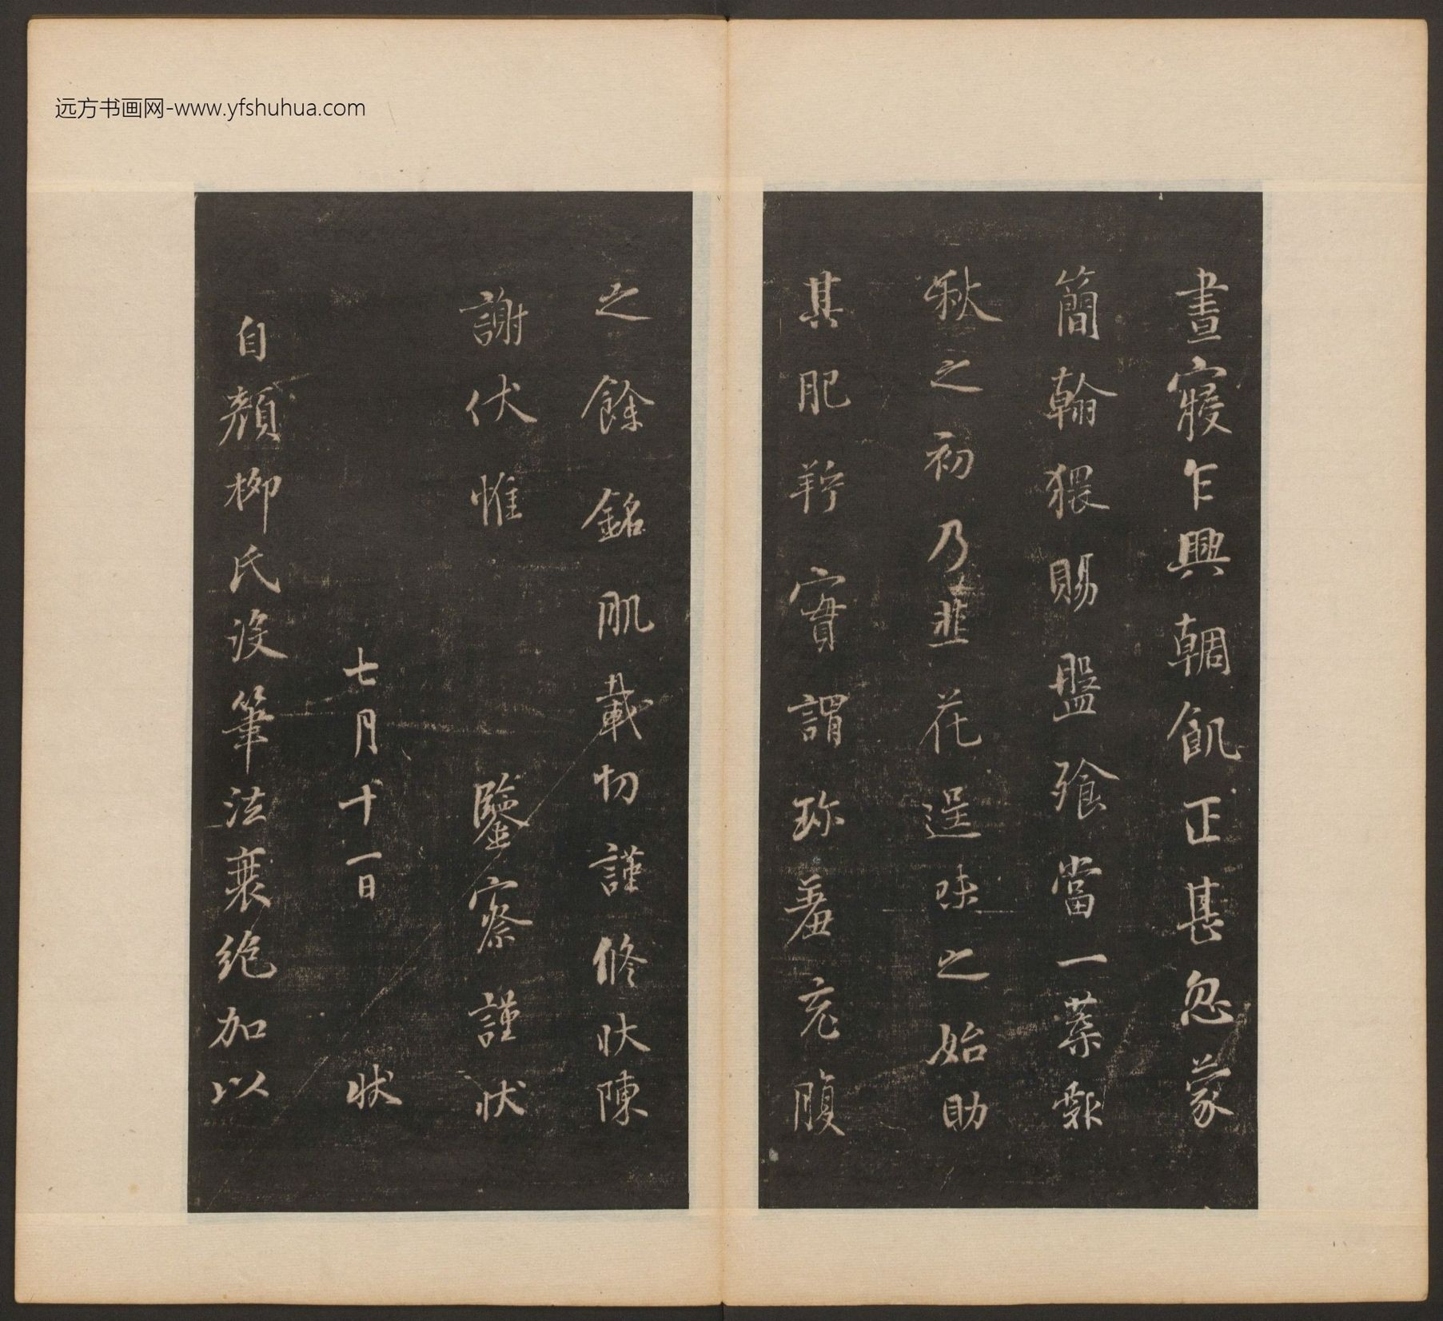 远方书画网-www.yfshuhua.com
晝寢乍興輖飢正甚忽蒙
簡翰猥賜盤飧當一葉報
秋之初乃韭花逞味之始助
其肥羜實謂珍羞充腹
之餘銘肌載切謹修狀陳
謝伏惟鑒察謹狀
七月十一日狀
自顏柳氏沒筆法衰絕加以